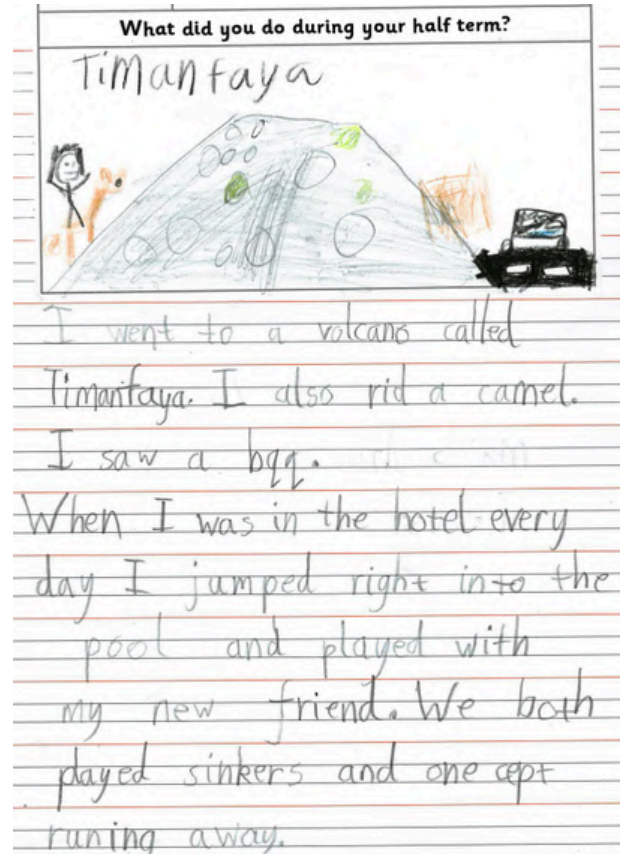 What did you do during your half term?
Timanfaya
I went to a volcano called
Timanfaya. I also rid a camel.
I saw a bqq.
When I was in the hotel every
day I jumped right into the
pool and played with
my new friend. We both
played sinkers and one cept
runing away.